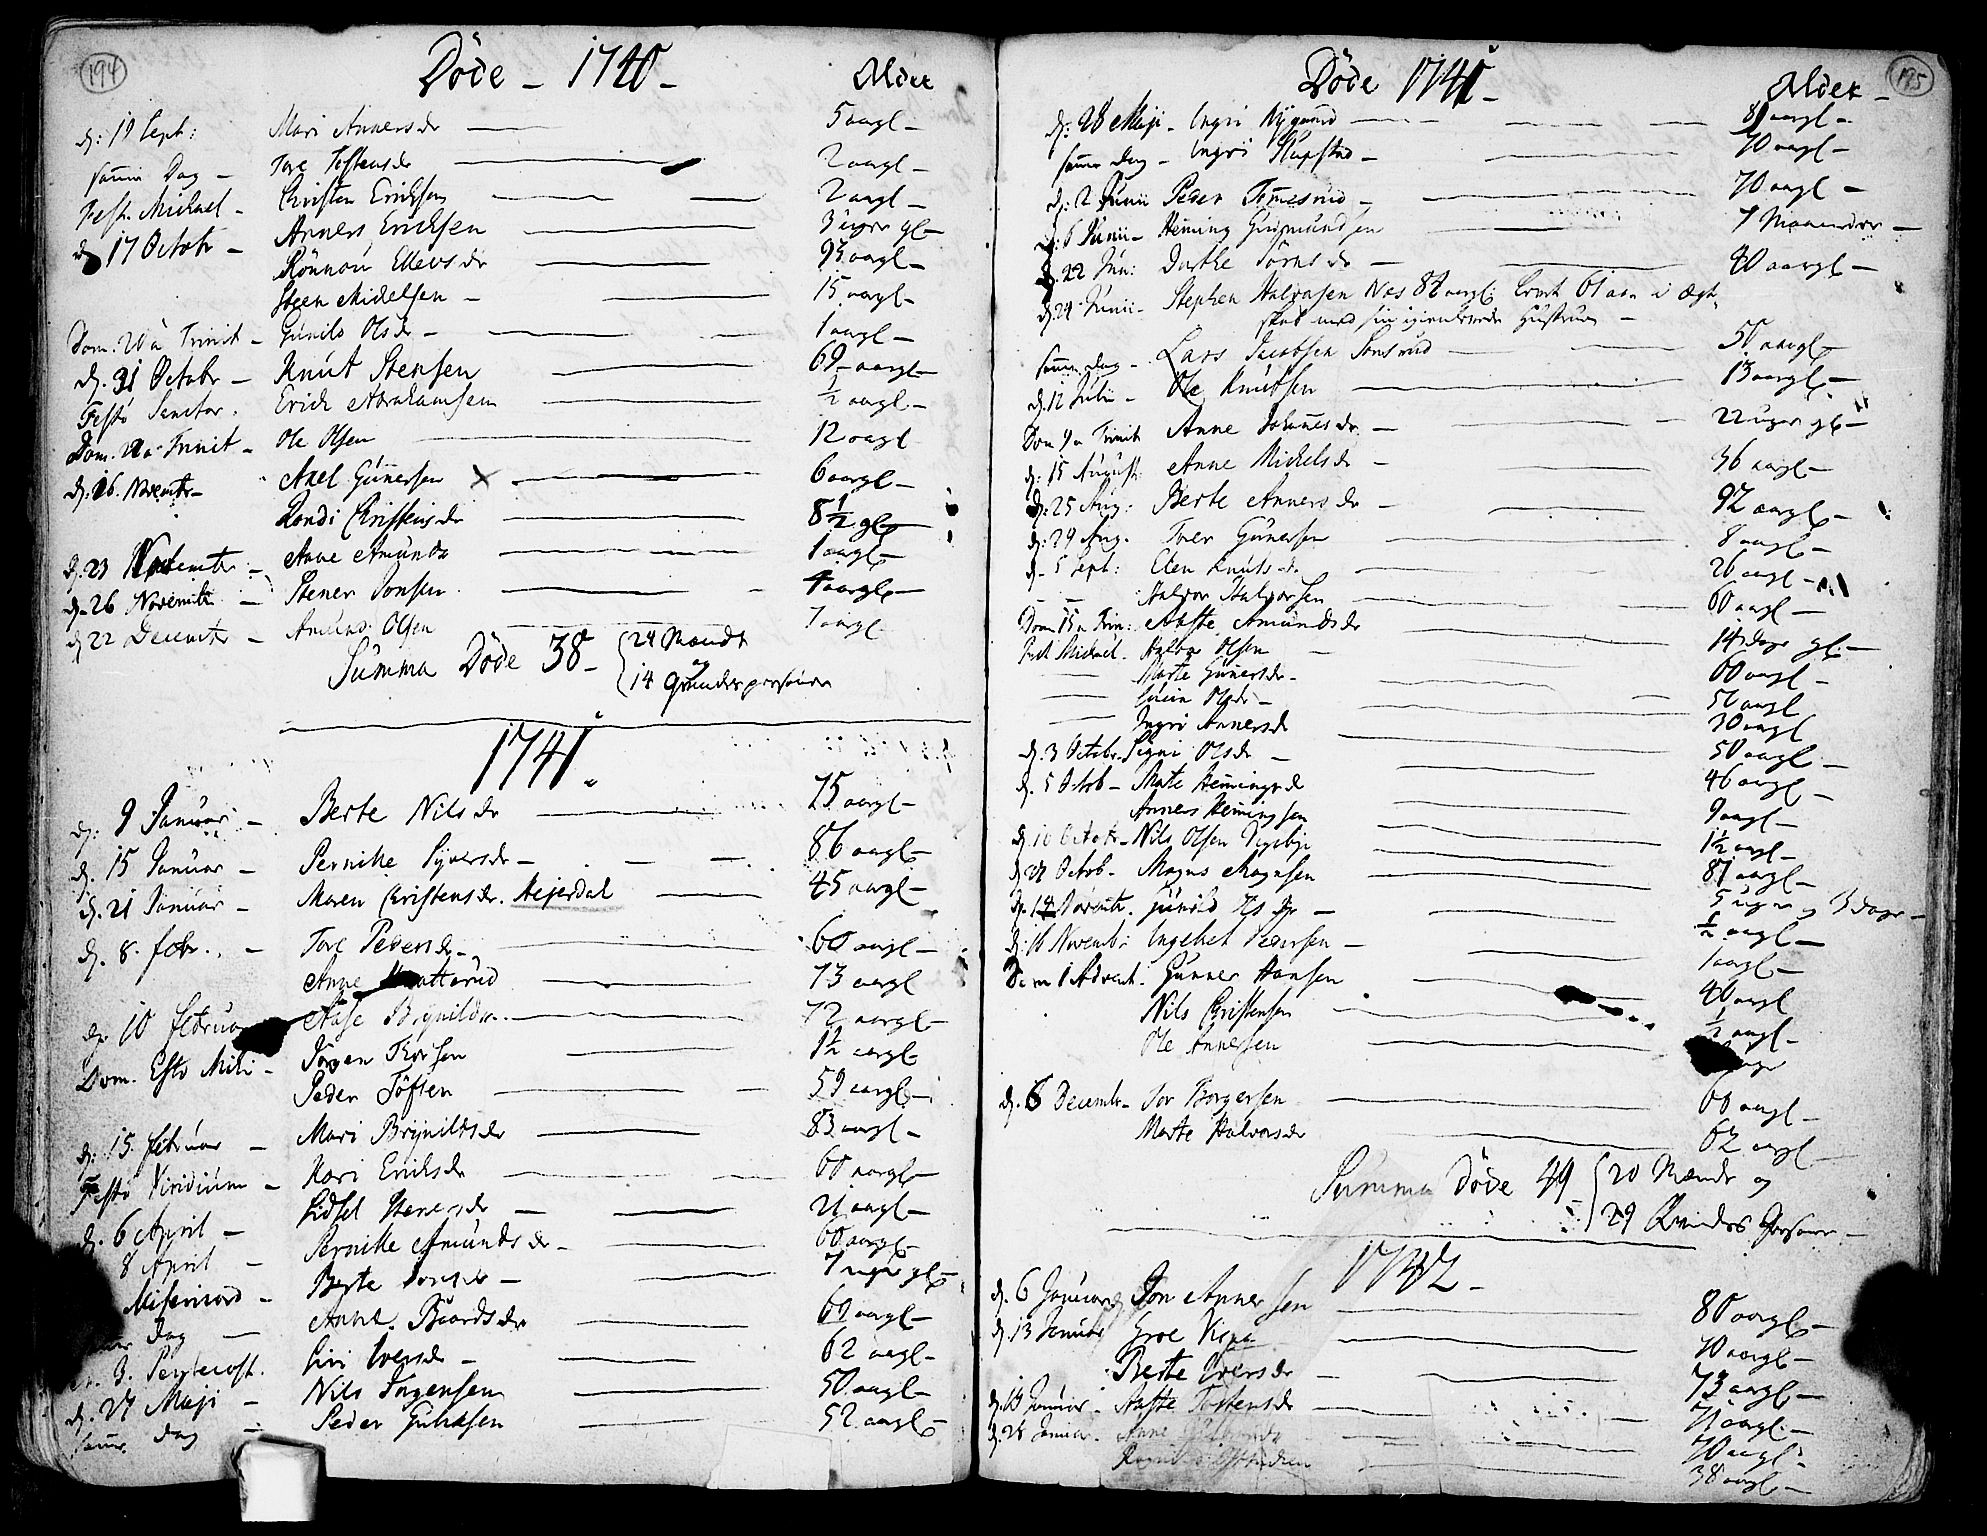 194
Døde - 1740 - Alder
d: 19 Sept: Mari Anners dr 5 aargl -
samme Dag - Tore Tostens dr 2 aargl -
Fest. Michael - Christen Ericksen 2 aargl -
d 17 Octobr - Anners Ericksen 3 uger gl -
Rönnou Ellevs dr 93 aargl -
Steen Mickelsen - 15 aargl -
Dom. 20 a Trinit - Gunild Ols dr - 1 aargl -
d. 31 Octobr - Knut Stensen 69 - aargl -
Festo Sanctor. Erick Abrahamsen ½ aargl. -
Dom. 22 a Trinit - Ole Olsen 12 aargl
d. 16. Novembr - Axel Gunersen 6 aargl -
Randi Christens dr 8½ gl -
d. 23 Novembr - Anne Amunds dr 1 aargl -
d. 26 Novembr - Stener Jonsen 4 aargl -
d 22 Decembr - Amund Olsen 7 aargl.
Summa Døde 38 - 24 Mandk
14 Qvindes persohner
1741.
d: 9 Januar - Berte Nils dr 75 aargl -
d. 15 Januar - Pernille Syvers dr - 86 aargl -
d. 21 Januar - Maren Christens dr. Hejerdal 45 aargl -
d. 8. febr. - Tore Peders dr - 60 aargl -
Anne 73 aargl
d. 10 februar Aase Brynilds dr. 72 aargl -
Dom. Esto Mihi - Jörgen Thorsen 1½ aargl -
Peder Töfsen 59 aargl -
d: 15 februar - Mari Brynilds dr 83 aargl -
Festo Viridium - Kari Ericks dr 60 aargl -
d. 6 April - Sidsel Steners dr - 21 aargl -
8 April - Pernille Amunds dr - 60 aargl -
Misericord - Berte Jons dr - 7 uger gl -
Dag - Anne Baards dr 60 aargl -
3. Pentecost. Siri Ivers dr - 62 aargl -
d. 27 Maji - Nils Jörgensen 50 aargl -
samme Dag - Peder Gulichsen 52 aargl -
195
Døde 1741 - Alder -
d: 28 Maji - Ingri Nygaard 81 aargl -
samme Dag - Ingri Skapstad - 70 aargl -
d: 2 Junii Peder Timesrud - 70 aargl -
d: 6 Junii - Heming Gudmundsen 7 Maaneder -
d. 22 Jun: Dorthe Törris dr - 40 aargl -
d 24 Junii - Stephen Halvorsen Næs 82 aargl: levet 61 aar i Ægte
skab med sin igienlevende Hustrue -
samme Dag - Lars Jacobsen Sonsrud 50 aargl -
d. 12 Julii - Ole Knutsen 13 aargl -
Dom 9 a Trinit Anne Johannes dr - 22 uger gl -
d: 15 August. Anne Mickels dr - 36 aargl -
d: 25 Aug: Berte Anners dr - 92 aargl -
d: 29 Aug. Iver Gunersen 8 aargl -
d - 5 Sept: Elen Knuts dr. 26 aargl -
Halvor Halvorsen 60 aargl -
Dom 15 a Trin: Aaste Amunds dr 14 dage gl. -
Fest Michael. Halvor Olsen 60 aargl -
Marte Guners dr - 50 aargl
Ols dr - 30 aargl
Ingri Anners dr 50 aargl -
d. 3 Octobr. Signi Ols dr - 46 aargl -
d. 5 Octob - Marte Hemings dr 9 aargl -
Anners Hemingsen 1½ aargl -
d 10 Octobr - Nils Olsen 81 aargl -
d 22 Octob - Magnus Magnsen 5 uger og 3 dage -
d. 14 Novembr. Gunild Ols dr - ½ aargl -
d. 16 Novembr Ingebret Pedersen - 1 aargl -
Dom 1 Advent. Gunner Hansen 40 aargl
Nils Christensen ½ aargl -
Ole Annersen
d. 6 Decembr - Tor Borgersen 60 aargl -
Marte Halvors dr 62 aargl -
Summa Døde 49 - 20 Mænds og
29 Qvindes Personer -
1742 -
d. 6 Januar Jon Annersen 80 aargl -
d. 13 Januar Groe 70 aargl -
Berte Ivers dr - 73 aargl -
d. 19 Januar - Aaste Tostens dr 71 aargl. -
d. 28 Januar. Anne 70 aargl -
38 aargl -